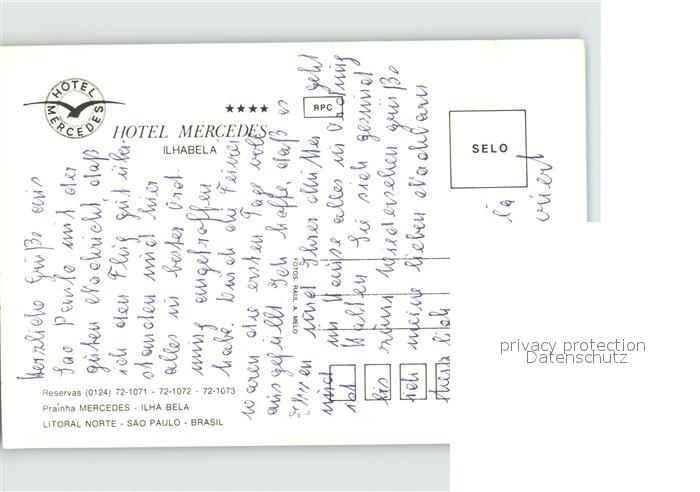 HOTEL MERCEDES
★★★★
HOTEL MERCEDES
ILHABELA
RPC
SELO
FOTOS: RAUL A. MELO
Reservas (0124) 72-1071 - 72-1072 - 72-1073
Prainha MERCEDES - ILHA BELA
LITORAL NORTE - SÃO PAULO - BRASIL
Herzliche Grüße aus
Sao Paulo mit der
guten Nachricht, daß
ich den Flug gut über-
standen und hier
alles in bester Ord-
nung angetroffen
habe. Durch die Feiern
waren die ersten Tage voll
ausgefüllt. Ich hoffe, daß es
Ihnen und Ihrer Mutter geht
und im Hause alles in Ordnung
ist. Halten Sie sich gesund
bis zum Wiedersehen grüße
ich meine lieben Nachbarn
herzlich
privacy protection
Datenschutz